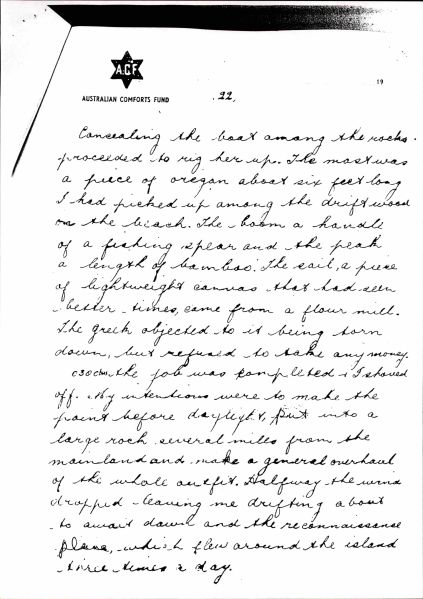 A.C.F.
19
AUSTRALIAN COMFORTS FUND
22.
Concealing the boat among the rocks.
proceeded to rig her up. The mast was
a piece of oregan about six feet long
I had picked up among the drift wood
on the beach. The boom a handle
of a fishing spear and the peak
a length of bamboo. The sail, a piece
of lightweight canvas that had seen
better times, came from a flour mill.
The greek objected to it being torn
down, but refused to take any money.
the job was completed & I shoved
off. My intentions were to make the
point before daylight, put into a
large rock several miles from the
mainland and make a general overhaul
of the whole outfit. Halfway the wind
dropped leaving me drifting about
to await dawn and the reconnaissance
plane, which flew around the island
three times a day.